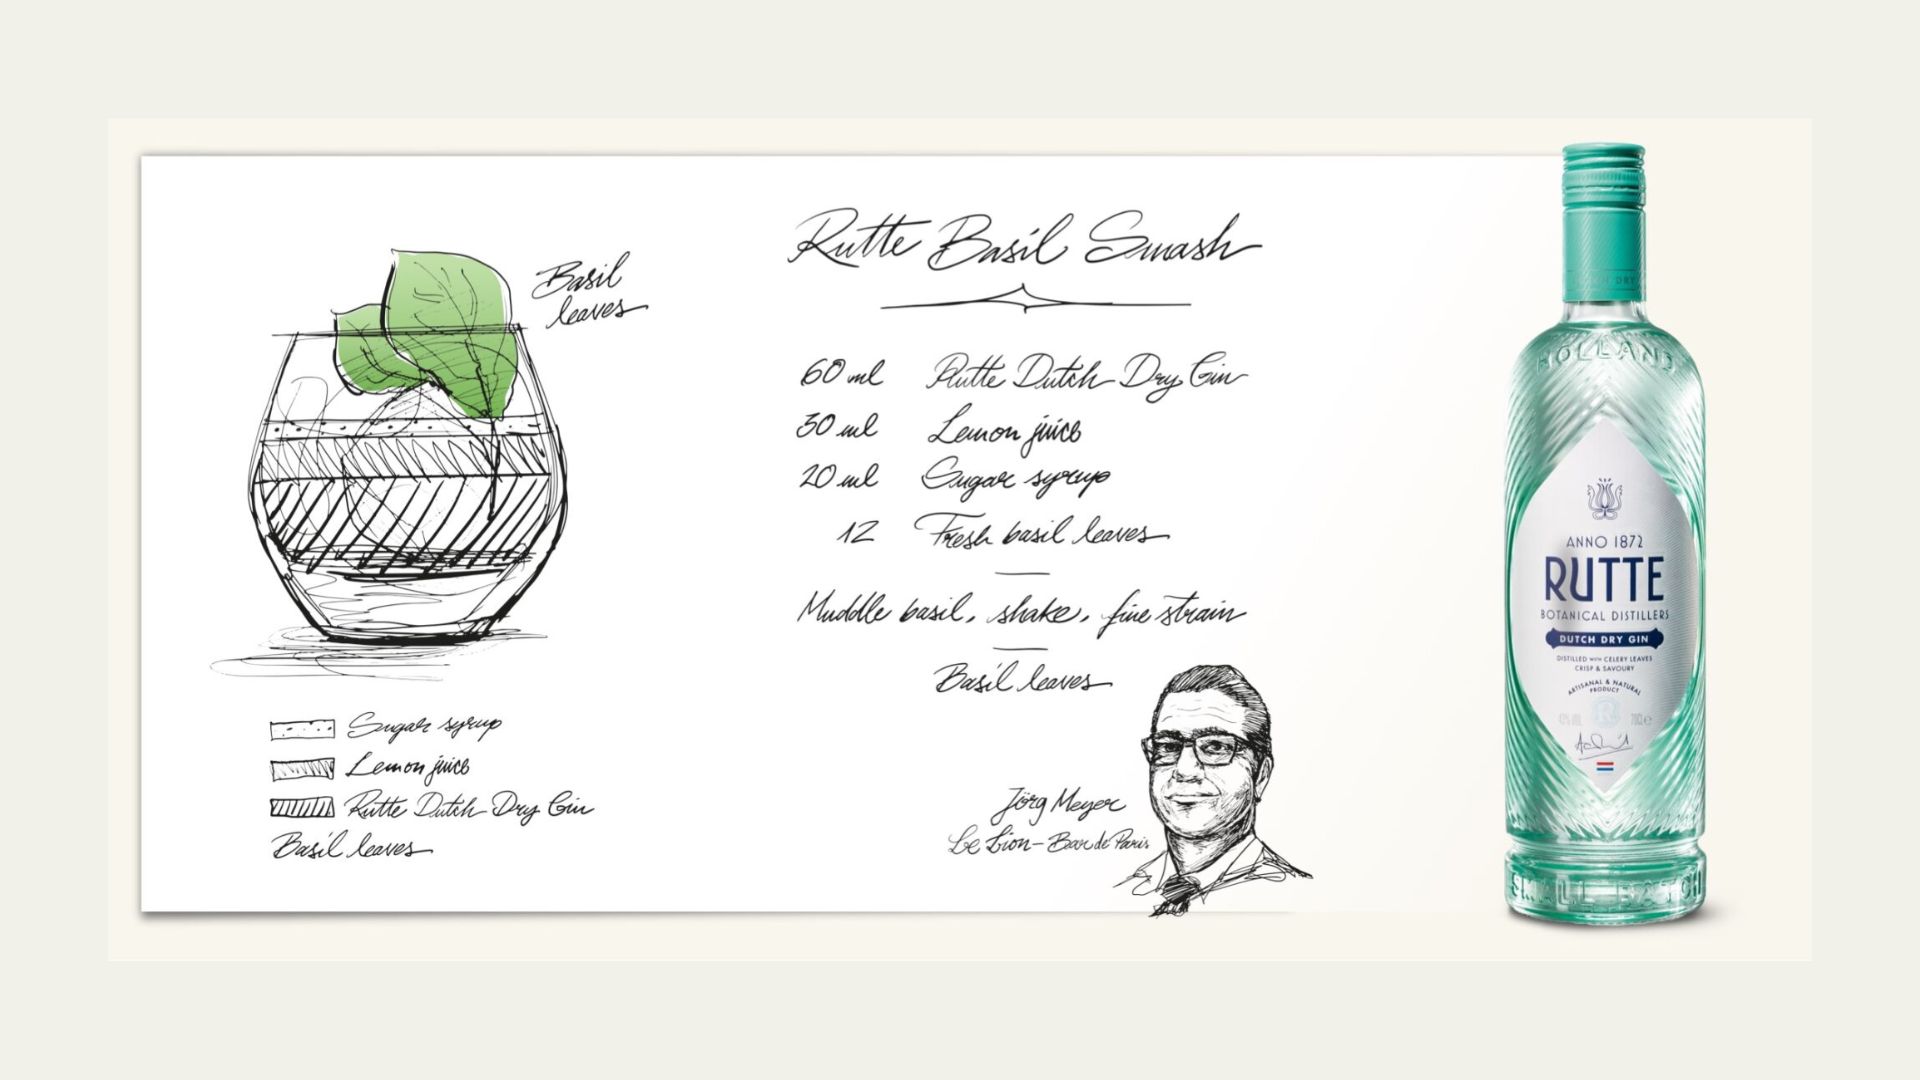 Basil
leaves
Sugar syrup
Lemon juice
Rutte Dutch Dry Gin
Basil leaves
Rutte Basil Smash
60 ml Rutte Dutch Dry Gin
30 ml Lemon juice
20 ml Sugar syrup
12 Fresh basil leaves
Muddle basil, shake, fine strain
Basil leaves
Jörg Meyer
Le Lion - Bar de Paris
HOLLAND
ANNO 1872
RUTTE
BOTANICAL DISTILLERS
DUTCH DRY GIN
DISTILLED WITH CELERY LEAVES
CRISP & SAVOURY
ARTISANAL & NATURAL
PRODUCT
70cl e
SMALL BATCH